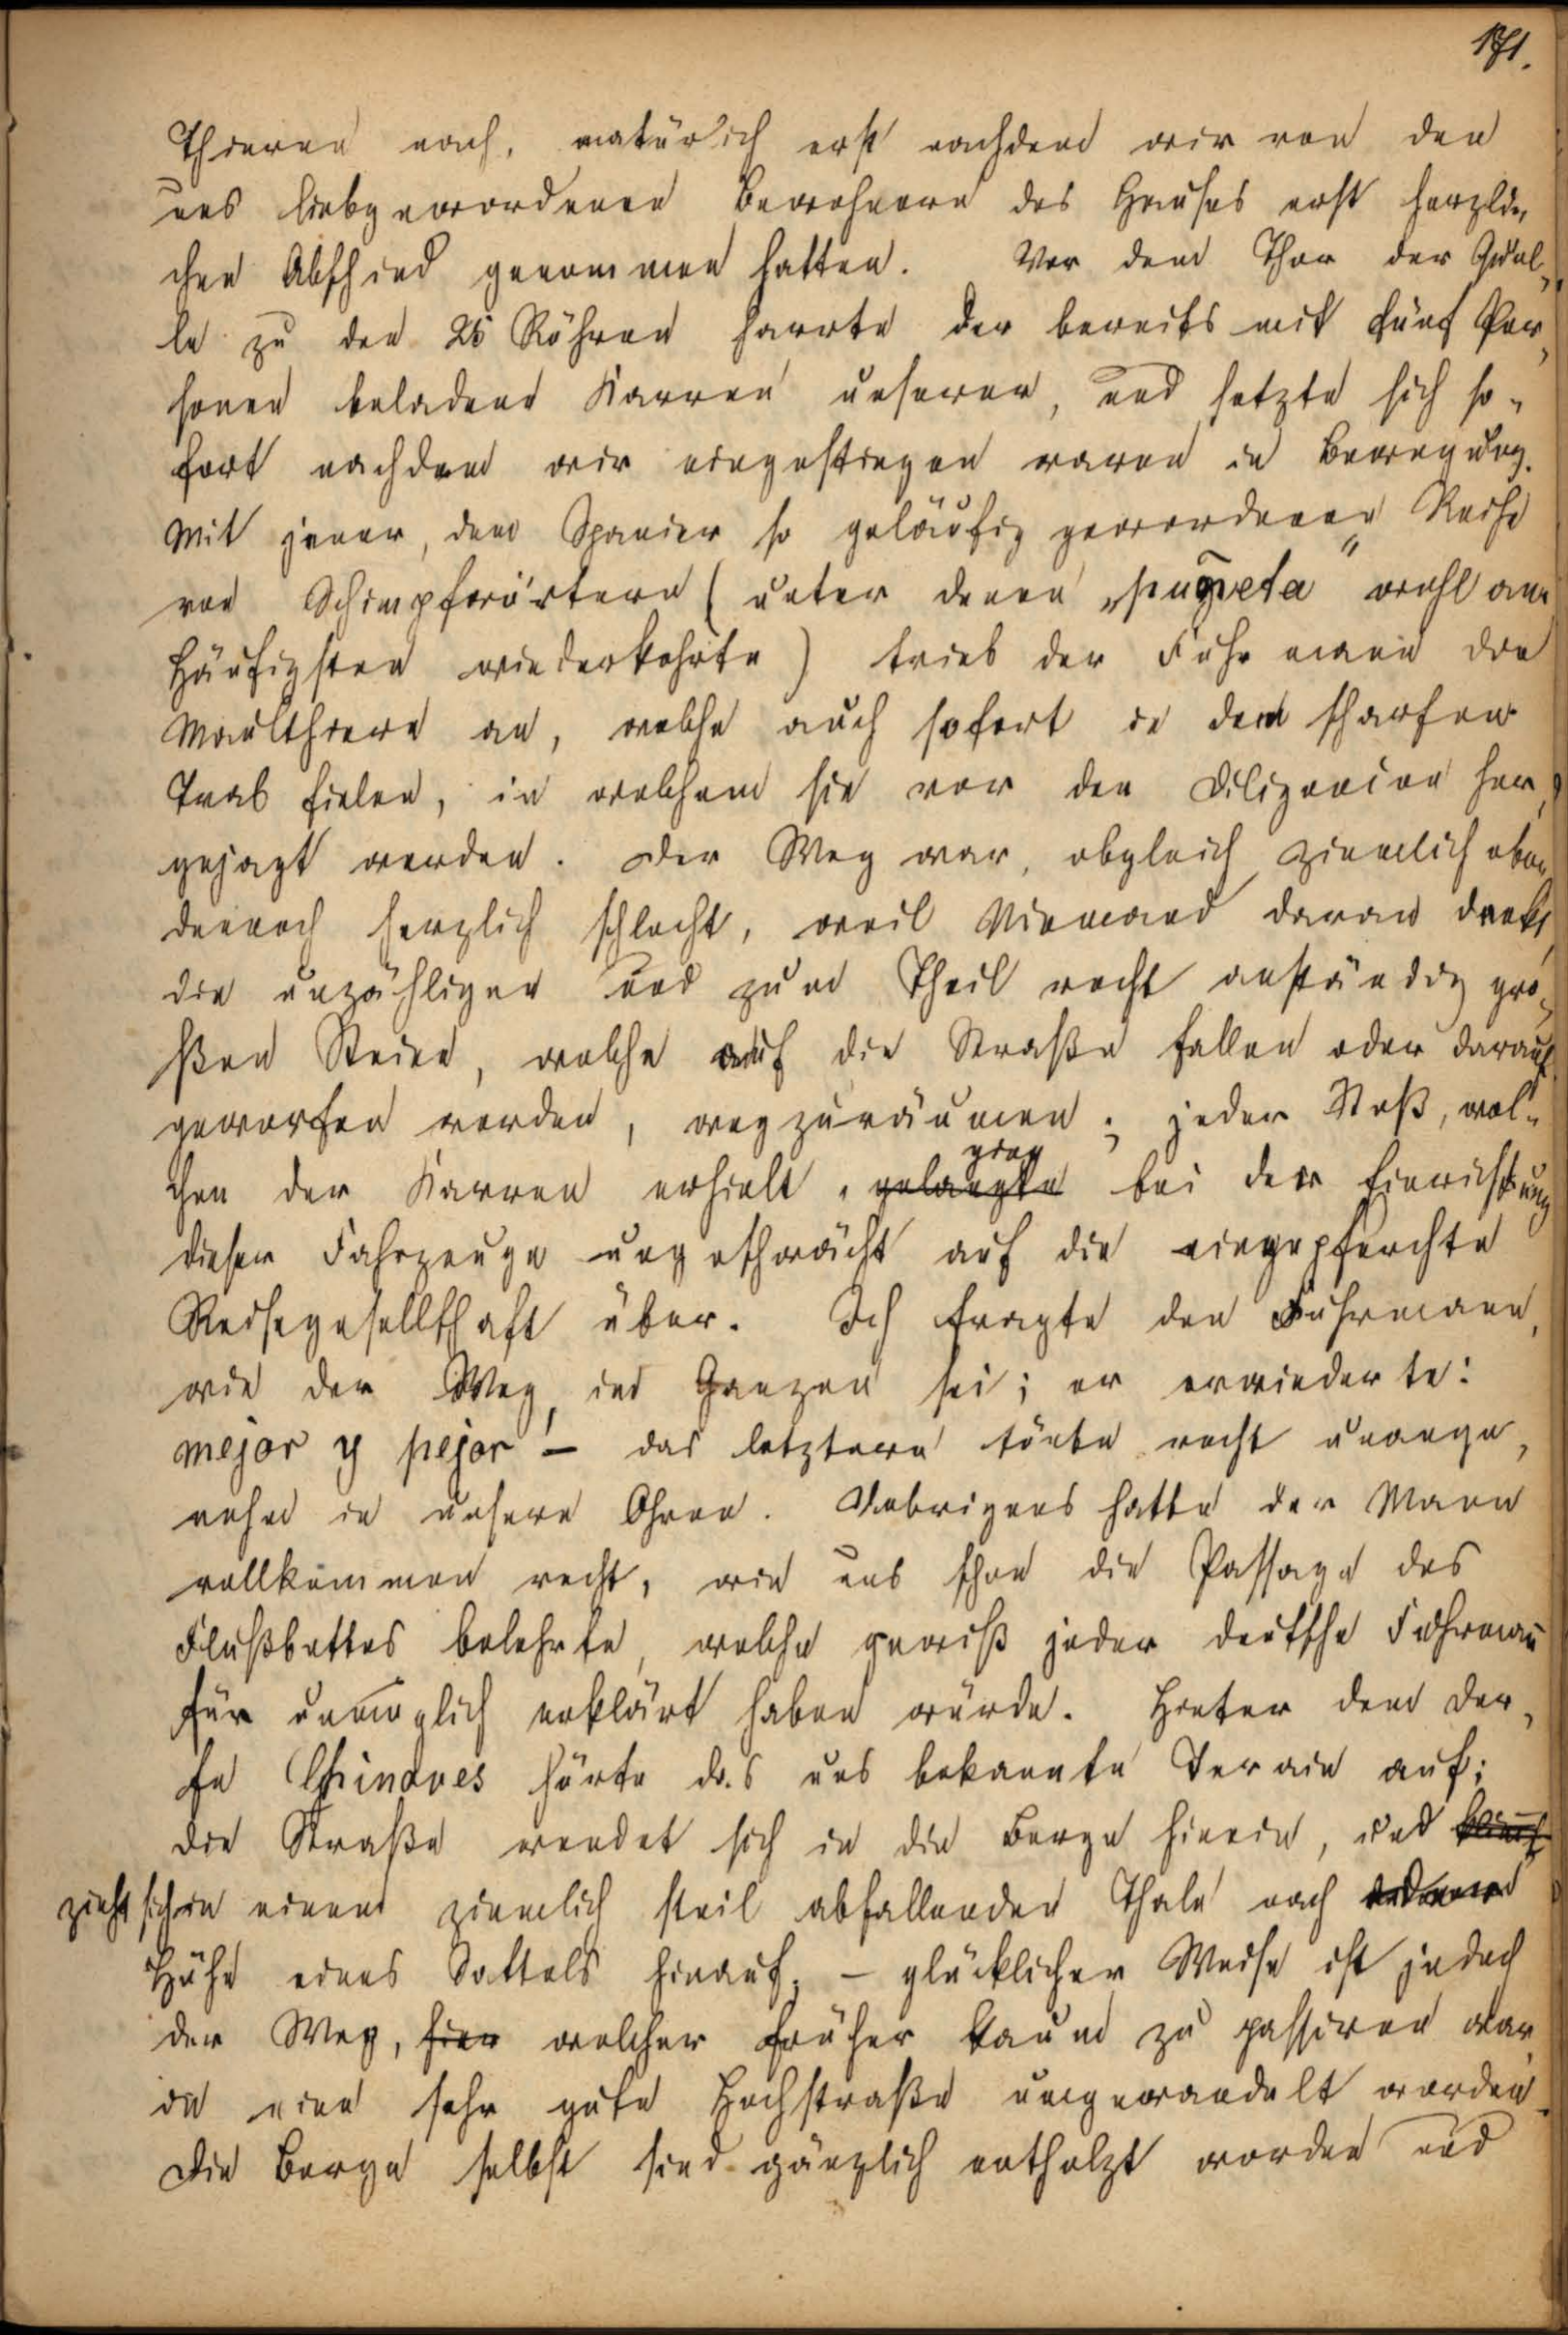 171.
Thieren nach, natürlich erst nachdem wir von den
uns liebgewordenen Bewohnern des Hauses erst herzli-
chen Abschied genommen hatten. Vor dem Thor der Quel-
le zu den 25 Röhren harrte der bereits mit fünf Per-
sonen beladene Karren unserer, und setzte sich so-
fort nachdem wir eingestiegen waren in Bewegung.
Mit jener, dem Spanier so geläufig gewordenen Reihe
von Schimpfwörtern (unter denen „puñeta" wohl am
Häufigsten wiederkehrte) trieb der Fuhrmann die
Maulthiere an, welche auch sofort in den scharfen
Trab fielen, in welchem sie vor den Diligencien her-
gejagt werden. Der Weg war, obgleich ziemlich eben
dennoch herzlich schlecht, weil Niemand daran denkt,
die unzähligen und zum Theil recht anständig gro-
ßen Steine, welche auf die Straße fallen oder darauf
geworfen werden, wegzuräumen; jeder Stoß, wel-
chen der Karren erhielt, gelangte ging bei der Einrichtung
dieser Fahrzeuge ungeschwächt auf die eingepferchte
Reisegesellschaft über. Ich fragte den Fuhrmann,
wie der Weg im Ganzen sei; er erwiederte:
mejor y pejor! – das letztere tönte recht unange-
nehm in unsere Ohren. Uebrigens hatte der Mann
vollkommen recht, wie uns schon die Passage des
Flußbettes belehrte, welche gewiß jeder deutsche Fuhrman̄
für unmöglich erklärt haben würde. Hinter dem Dor-
fe Chinaves hörte das uns bekannte Terain auf;
die Straße wendet sich in die Berge hinein, und
zieht sich in einem ziemlich steil abfallenden Thale nach
Höhe eines Sattels hinauf; – glücklicher Weise ist jedoch
der Weg, hier welcher früher kaum zu passiren war
in eine sehr gute Hochstraße umgewandelt worden.
Die Berge selbst sind gänzlich entholzt worden und